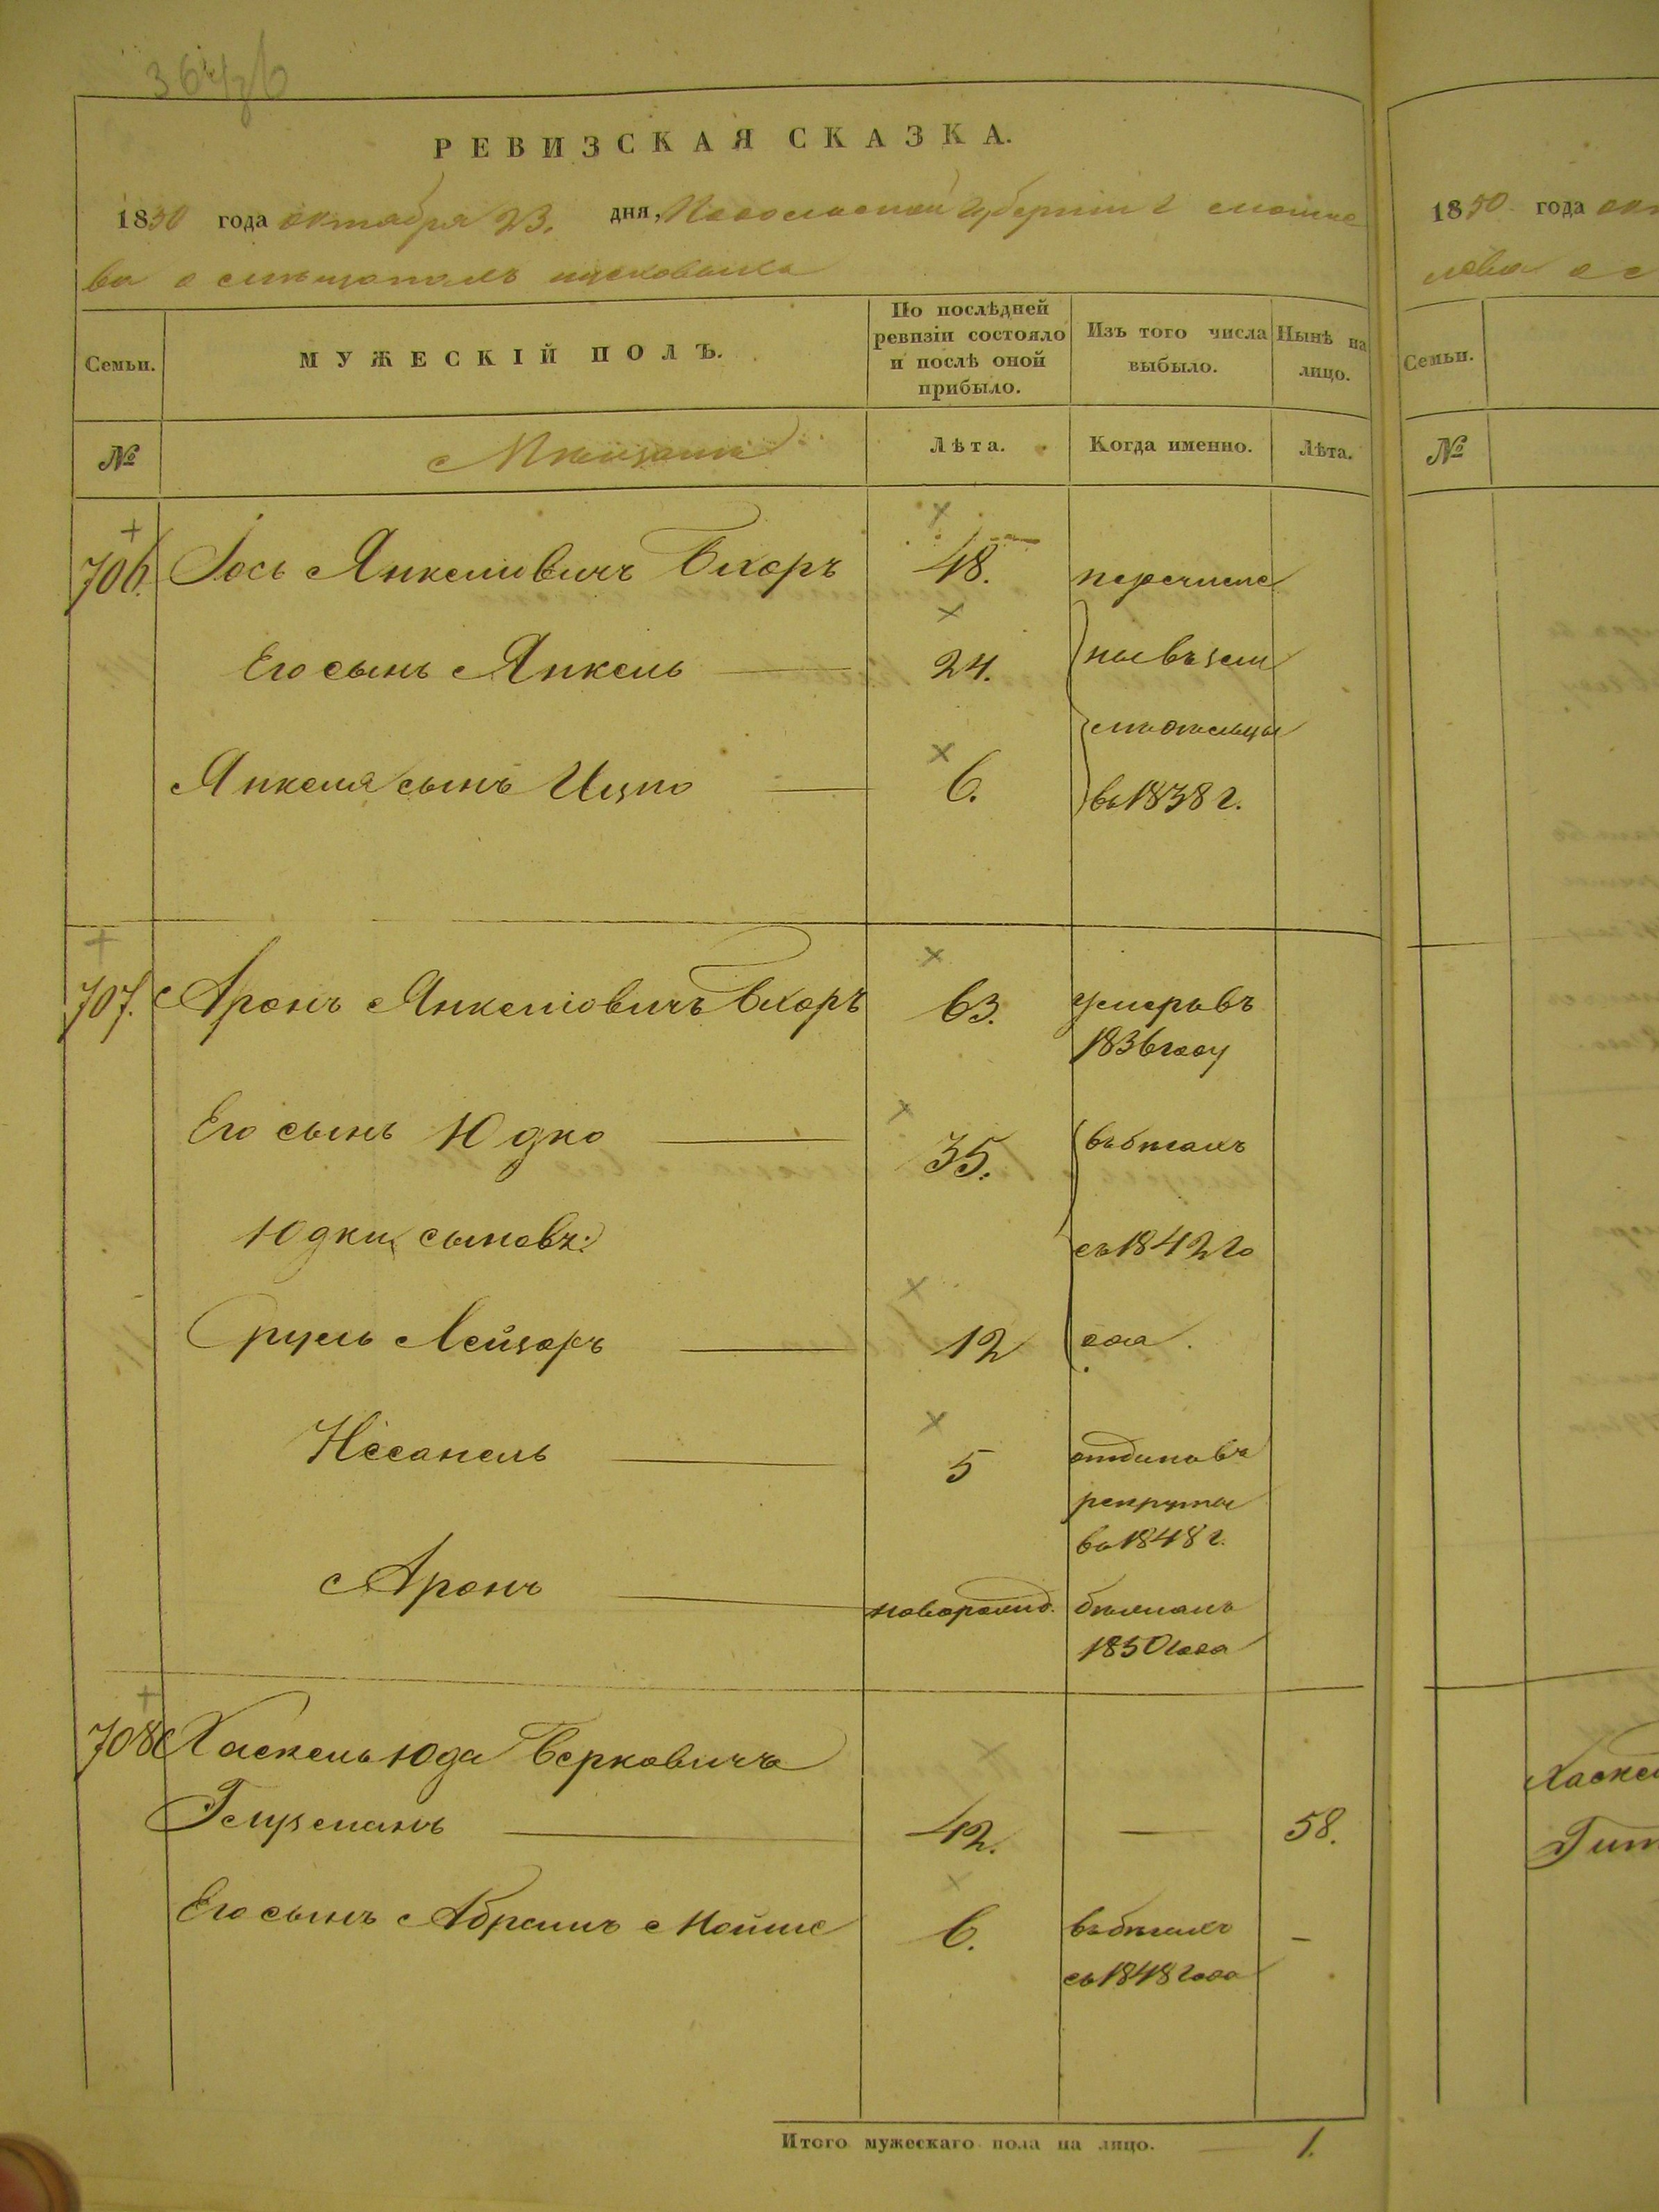 РЕВИЗСКАЯ СКАЗКА.
1850 года октября 23. дня, Подольской Губерніи г
ва о мѣщанахъ
Семьи.
МУЖЕСКІЙ ПОЛЪ.
По послѣдней ревизіи состояло и послѣ оной прибыло.
Изъ того числа выбыло.
Нынѣ на лицо.
№
Мѣщане
Лѣта.
Когда именно.
Лѣта.
706. Іось Янкелиовичъ Бхоръ 48. перечисле
Его сынъ Янкель 24. ны въ зем
Янкеля сынъ Ицко 6. въ 1838 г.
707. Аронъ Янкеліовичъ Бхоръ 63. умеръ въ
1836 году
Его сынъ Юдко 35. въ бѣгахъ
Юдки сыновъ: съ 1842 го
Сруль Лейзоръ 12 года.
Нссанель 5 отданъ въ
рекруты
въ 1848 г.
Аронъ новорожд. бѣжалъ
1850 года
708 Хаскель Юда Берковичъ
Гелузманъ 42. — 58.
Его сынъ Абрамъ Мойше 6. въ бѣгахъ —
съ 1848 года
Итого мужескаго пола на лицо. 1.
1850 года окт
Семьи.
№
Хаскел
Гит